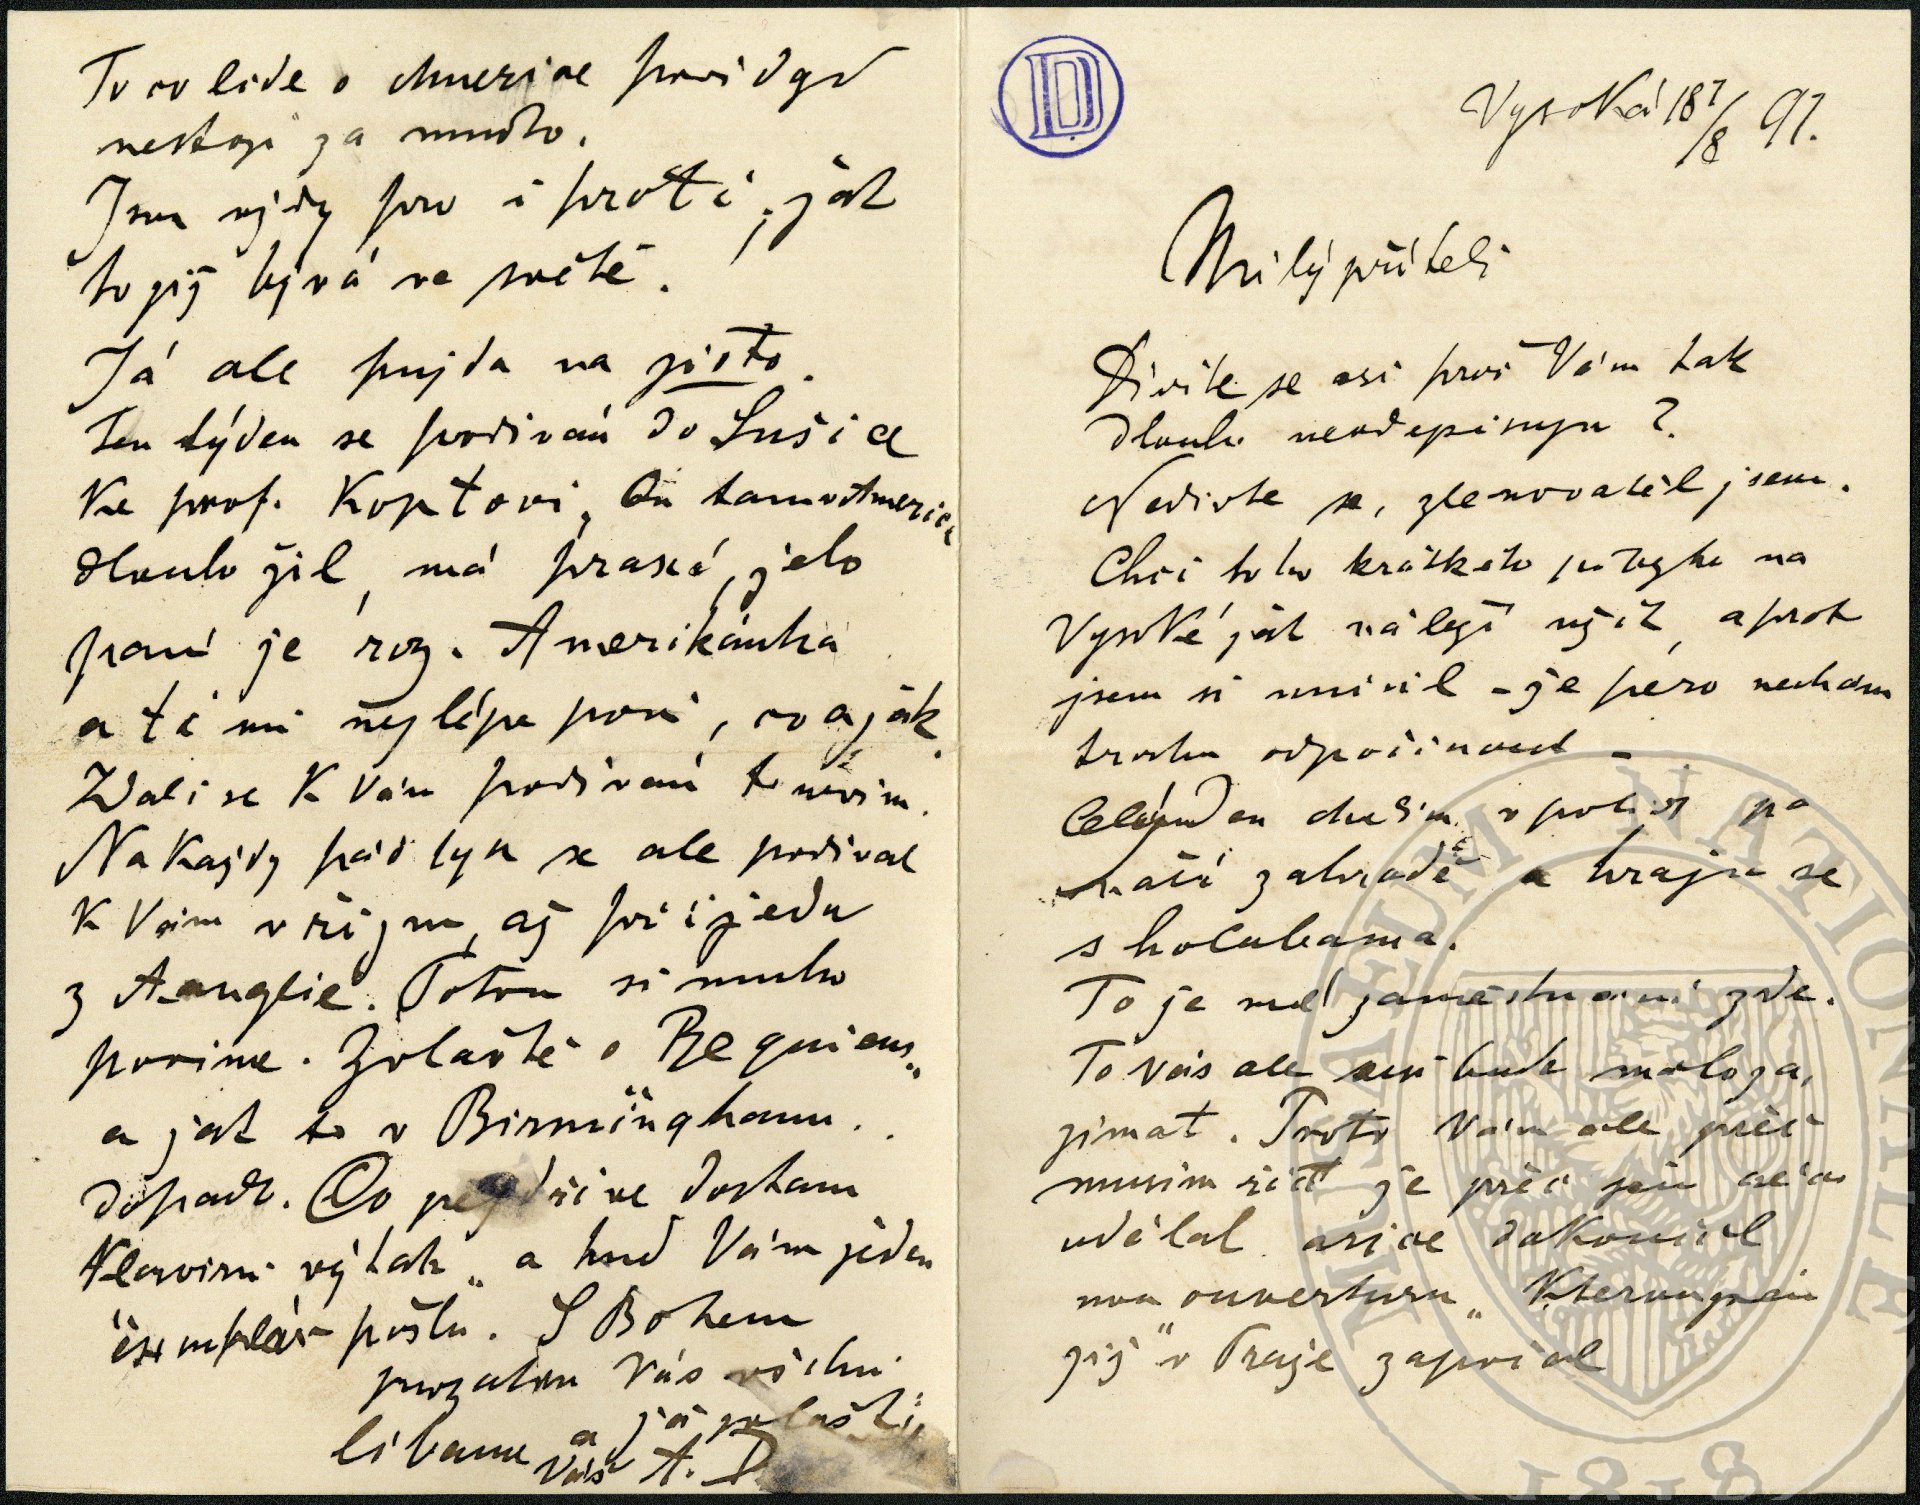 Vysoká 18 7/8 91.
Milý příteli
Divíte se asi proč Vám tak
dlouho neodepisuju?
Nedivte se, zlenovatěl jsem.
Chci toho krátkého pobytu na
Vysoké ják náleží užít, a prot
jsem si umínil – že péro nechám
trochu odpočinout –
Celý den chodím v polích po
naší zahradě a hraju se
s holubama.
To je mé zaměstnání zde.
To Vás ale asi bude málo za,
jímat. Proto Vám ale přec
musím říct že přec jen něco
udělal asice dokončil
mou ouverturu „ kterou jsem
již " v Praze započal
To co lidé o Americe povídajú
nestojí za mnoho.
Jsou vždy pro i proti, ják
to již bývá ve světě.
Já ale pujdu na jisto.
Ten týden se podívám do Sušice
Ke prof. Koptovi, On tam v Americe
dlouho žil, má praská, jeho
paní je roz. Amerikánka
a tí mi nejlépe poví, co a ják
Zdali se K Vám podívám to nevím.
Na Každy pád bych se ale podíval
K Vám v říjnu, až přijedu
z Aanglie. Potom si mnoho
povíme. Zvlaště o Requiem„
a jak to v Birminghamu.
dopadlo. Co nejdříve dostanu
Klavirní výtah „ a hned Vám jeden
exemplár pošlu. S Bohem
prozatím Vás všichni
líbáme a já zvlaští
Váš A. D
MUSAEUM NATIONALE
1818
D